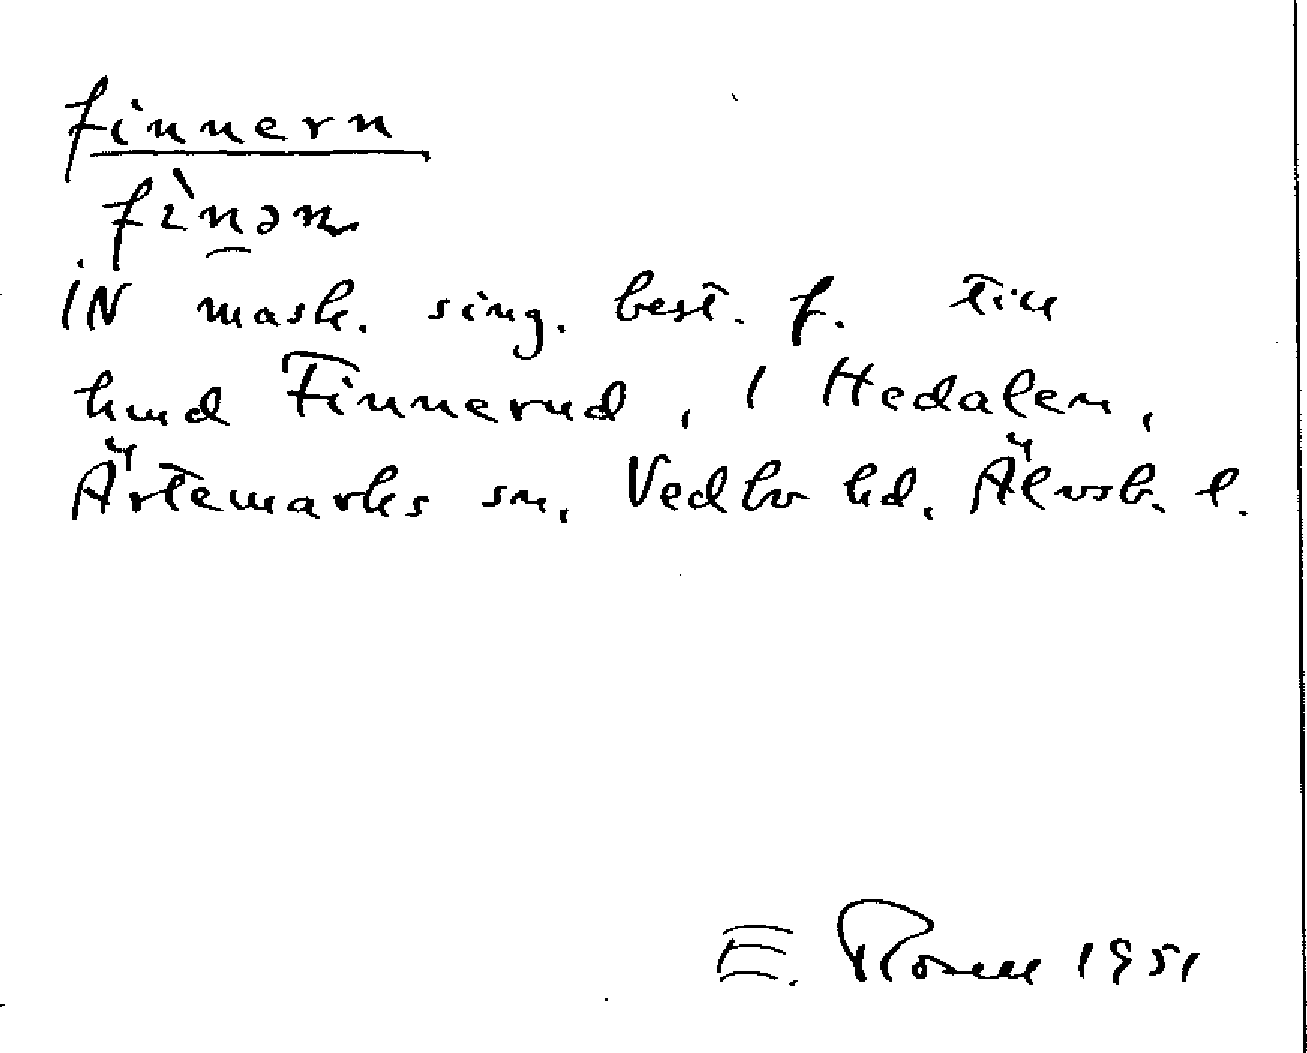 finnern
fìnəɳ
IN mask. sing. best. f. till
hmd Finnerud, i Hedalen,
Ärtemarks sn, Vedbo hd. Älvsb. l.
E. Rosell 1951